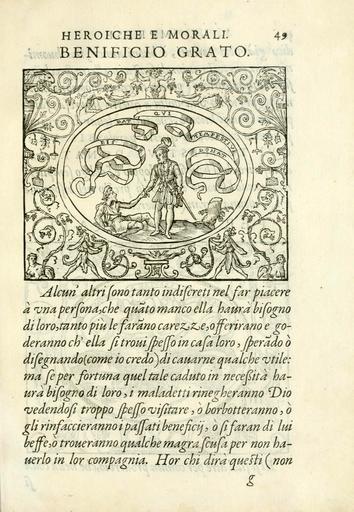 HEROICHE E MORALI. 49
BENIFICIO GRATO.
BIS DAT QUI TEMPESTIVE DONAT
Alcun' altri sono tanto indiscreti nel far piacere
à vna persona, che quāto manco ella haurà bisogno
di loro, tanto piu le farāno carezze, offerirano e go-
deranno ch' ella si troui spesso in casa loro, sperādo ò
disegnando (come io credo) di cauarne qualche vtile:
ma se per fortuna quel tale caduto in necessità ha-
urà bisogno di loro, i maladetti rinegheranno Dio
vedendosi troppo spesso visitare, ò borbotteranno, ò
gli rinfaccieranno i passati beneficij, ò si faran di lui
beffe, ò troueranno qualche magra scusa per non ha-
uerlo in lor compagnia. Hor chi dirà questi (non
g